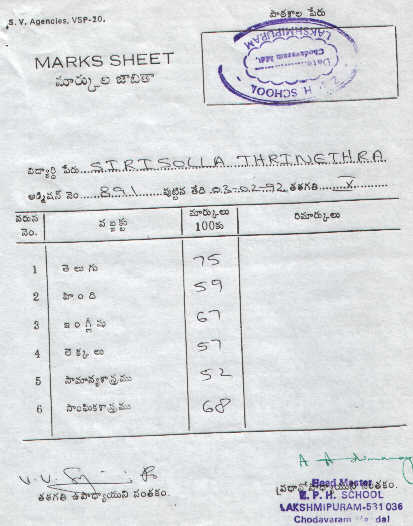 S. V. Agencies, VSP-20.
పాఠశాల పేరు
MARKS SHEET
మార్కుల జాబితా
LAKSHMIPURAM
Chodavaram Mdl.
Date
H SCHOOL
విద్యార్థి పేరు SIRISOLLA THRINETHRA
అడ్మిషన్ నెం. 891 పుట్టిన తేది 03-02-92 తరగతి X
వరుస నెం. సబ్జక్టు మార్కులు 100కు రిమార్కులు
1 తెలుగు 75
2 హింది 59
3 ఇంగ్లీషు 67
4 లెక్కలు 57
5 సామాన్యశాస్త్రము 52
6 సాంఘికశాస్త్రము 68
తరగతి ఉపాధ్యాయుని సంతకం.
ప్రధానోపాధ్యాయుని సంతకం.
Head Master
Z. P. H. SCHOOL
LAKSHMIPURAM-531 036
Chodavaram Mandal